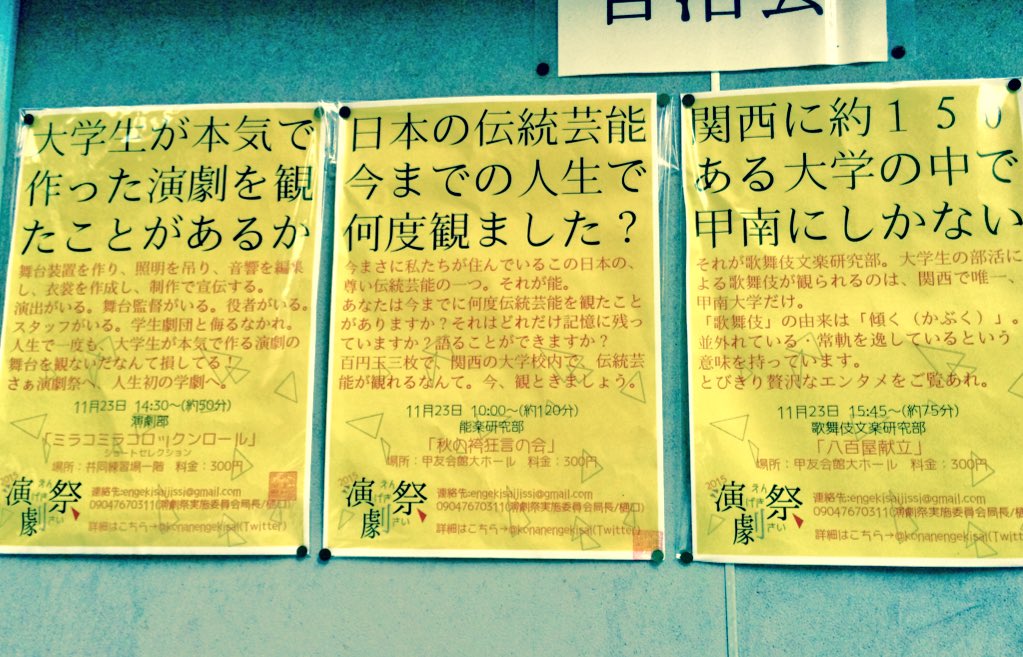 自治会
大学生が本気で
作った演劇を観
たことがあるか
舞台装置を作り、照明を吊り、音響を編集
し、衣裳を作成し、制作で宣伝する。
演出がいる。舞台監督がいる。役者がいる。
スタッフがいる。学生劇団と侮るなかれ。
人生で一度も、大学生が本気で作る演劇の
舞台を観ないだなんて損してる!
さぁ演劇祭へ、人生初の学劇へ。
11月23日 14:30〜(約50分)
演劇部
「ミラコミラコロックンロール」
ショートセレクション
場所：共同練習場一階 料金：300円
2015
演劇祭
えんげきさい
連絡先:engekisaijissi@gmail.com
09047670311(演劇祭実施委員会局長/樋口)
詳細はこちら→@konanengekisai(Twitter)
日本の伝統芸能
今までの人生で
何度観ました？
今まさに私たちが住んでいるこの日本の、
尊い伝統芸能の一つ。それが能。
あなたは今までに何度伝統芸能を観たこと
がありますか？それはどれだけ記憶に残っ
ていますか？語ることができますか？
百円玉三枚で、関西の大学校内で、伝統芸
能が観れるなんて。今、観ときましょう。
11月23日 10:00〜(約120分)
能楽研究部
「秋の袴狂言の会」
場所：甲友会館大ホール 料金：300円
2015
演劇祭
えんげきさい
連絡先:engekisaijissi@gmail.com
09047670311(演劇祭実施委員会局長/樋口)
詳細はこちら→@konanengekisai(Twitter)
関西に約１５０
ある大学の中で
甲南にしかない
それが歌舞伎文楽研究部。大学生の部活に
よる歌舞伎が観られるのは、関西で唯一、
甲南大学だけ。
「歌舞伎」の由来は「傾く（かぶく）」。
並外れている・常軌を逸しているという
意味を持っています。
とびきり贅沢なエンタメをご覧あれ。
11月23日 15:45〜(約75分)
歌舞伎文楽研究部
「八百屋献立」
場所：甲友会館大ホール 料金：300円
2015
演劇祭
えんげきさい
連絡先:engekisaijissi@gmail.com
09047670311(演劇祭実施委員会局長/樋
詳細はこちら→@konanengekisai(Twitt